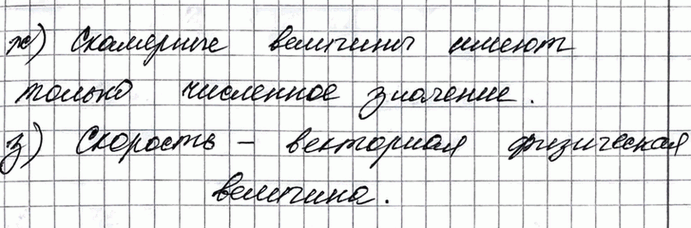 ж) Скалярные величины имеют
только численное значение.
з) Скорость – векторная физическая
величина.